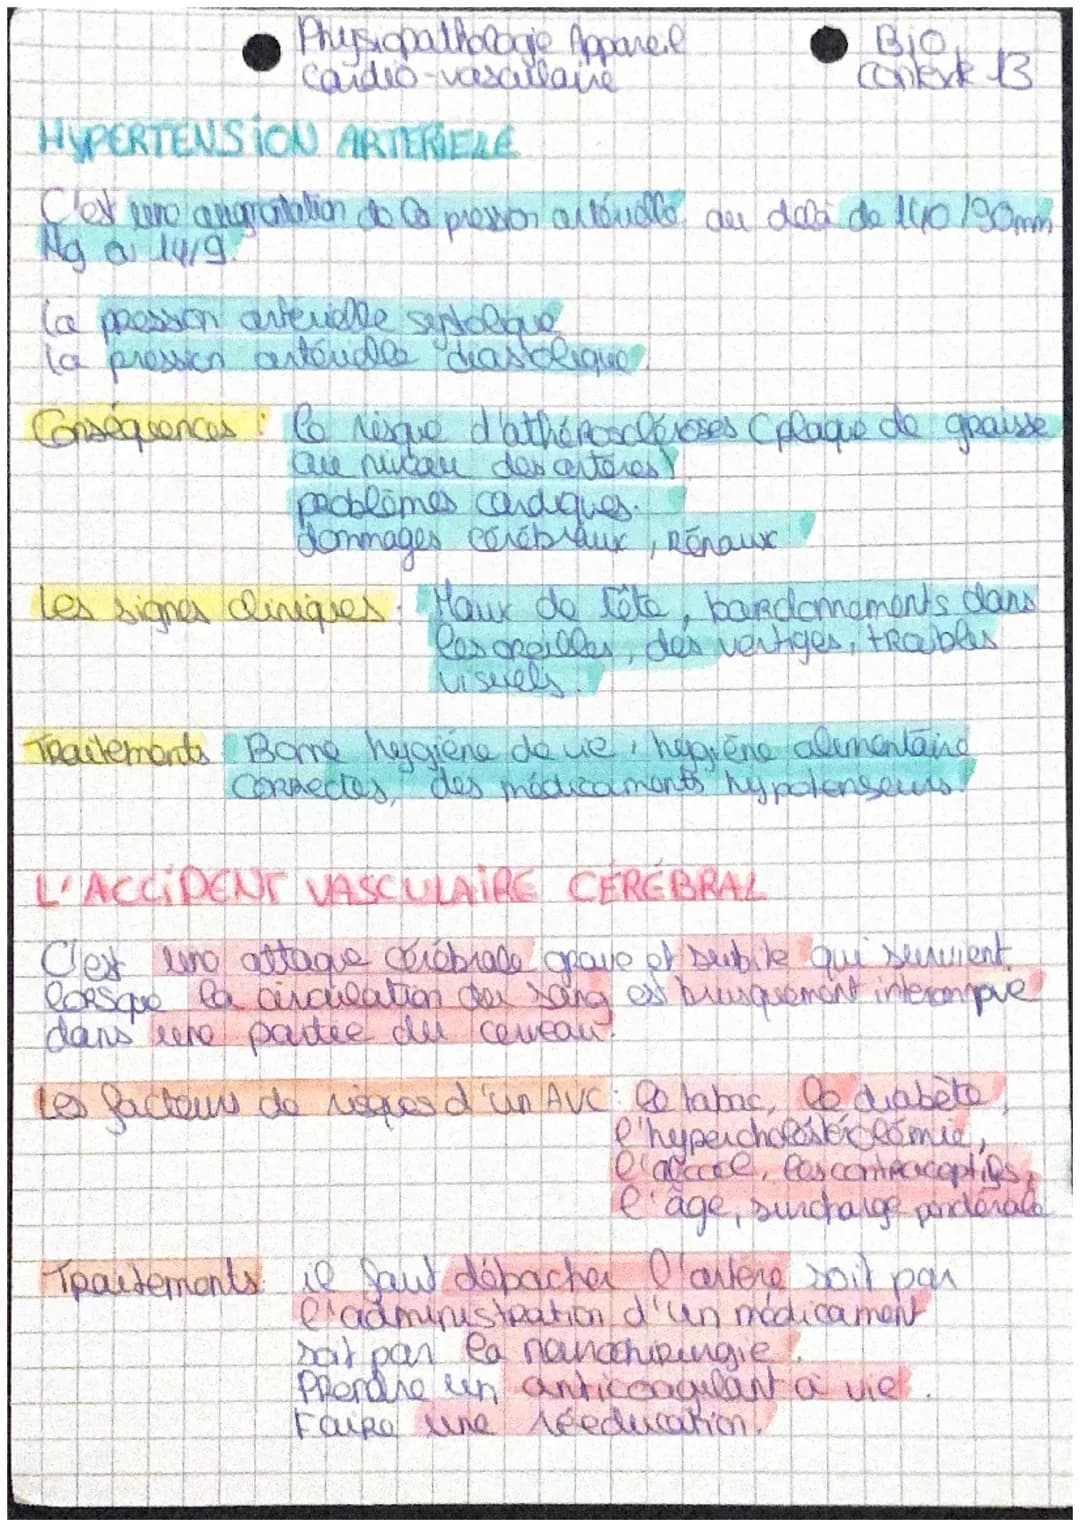 Physiopathologie Appareil
cardio-vasculaire
Bio
contexte 13
HYPERTENSION ARTERIELLE
C'est une augmentation de la pression artérielle au delà de 140/90mm
Hg ou 14/9.
La pression artérielle systolique
La pression artérielle diastolique.
Conséquences : le risque d'athéroscléroses (plaque de graisse
au niveau des artères)
problèmes cardiques.
dommages cérébraux, rénaux
Les signes cliniques : Maux de tête, bourdonnements dans
les oreilles, des vertiges, troubles
visuels.
Traitements Bonne hygiène de vie, hygiène alimentaire
correctes, des médicaments hypotenseurs.
L'ACCIDENT VASCULAIRE CÉRÉBRAL
C'est une attaque cérébrale grave et subite qui survient
lorsque la circulation du sang est brusquement interompue
dans une partie du cerveau.
Les facteurs de risques d'un AVC : le tabac, le diabète,
l'hypercholéstérolémie,
l'alcool, les contraceptifs,
l'âge, surcharge pondérale
Traitements : il faut débacher l'artère soit par
l'administration d'un médicament
soit par la neurochirurgie.
Prendre un anticoagulant à vie.
Faire une rééducation.